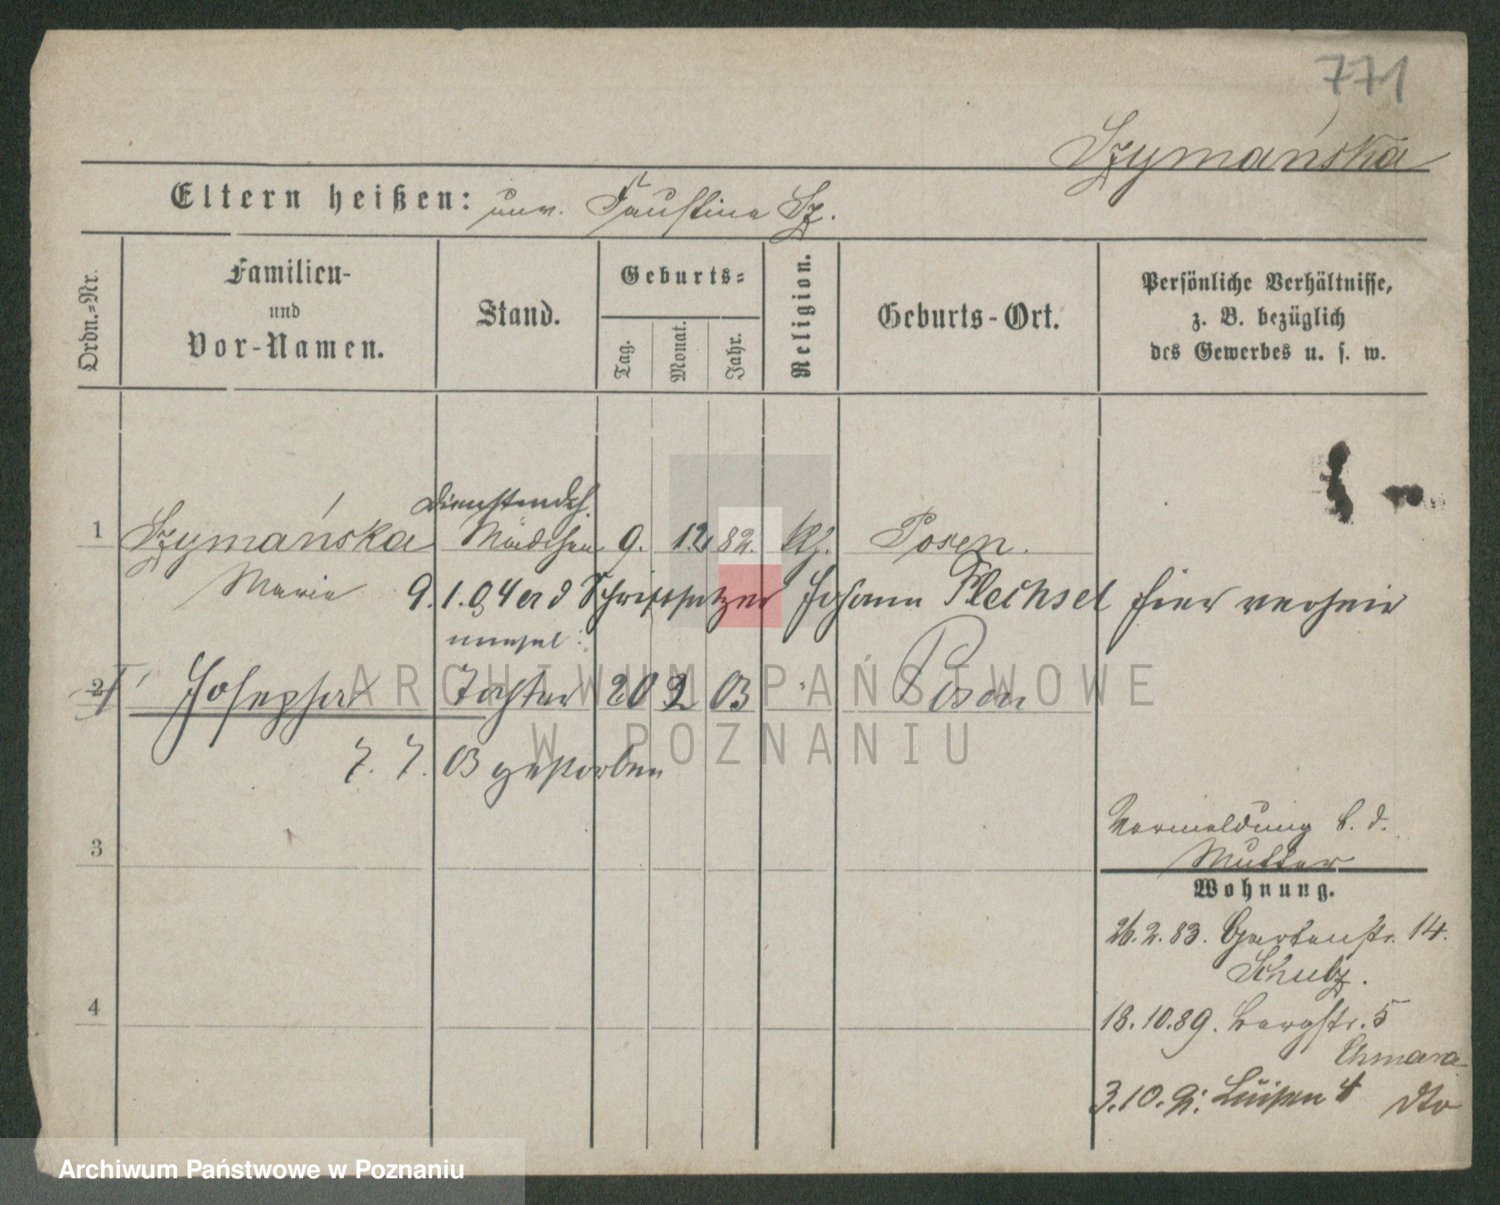 771
Szymańska
Eltern heißen: unv. Faustina Sz.
Ordn.=Nr.
Familien-
und
Vor-Namen.
Stand.
Geburts=
Tag.
Monat.
Jahr.
Religion.
Geburts-Ort.
Persönliche Verhältnisse,
z. B. bezüglich
des Gewerbes u. s. w.
1 Szymańska Mädchen 9. 12. 82. Posen.
Marie 9. 1. 04 er d Schriftsetzer Johann Plechsel hier
unehel:
2 Josepha Tochter 20 2 03 Posen
7. 7. 03 gestorben
3
Vormeldung b. d.
Mutter
Wohnung.
26. 2. 83. Gartenstr. 14.
Schulz.
4
18. 10. 89. Bergstr. 5
Chmara
3. 10. Luisen 4 dto
ARCHIWUM PAŃSTWOWE
W POZNANIU
Archiwum Państwowe w Poznaniu